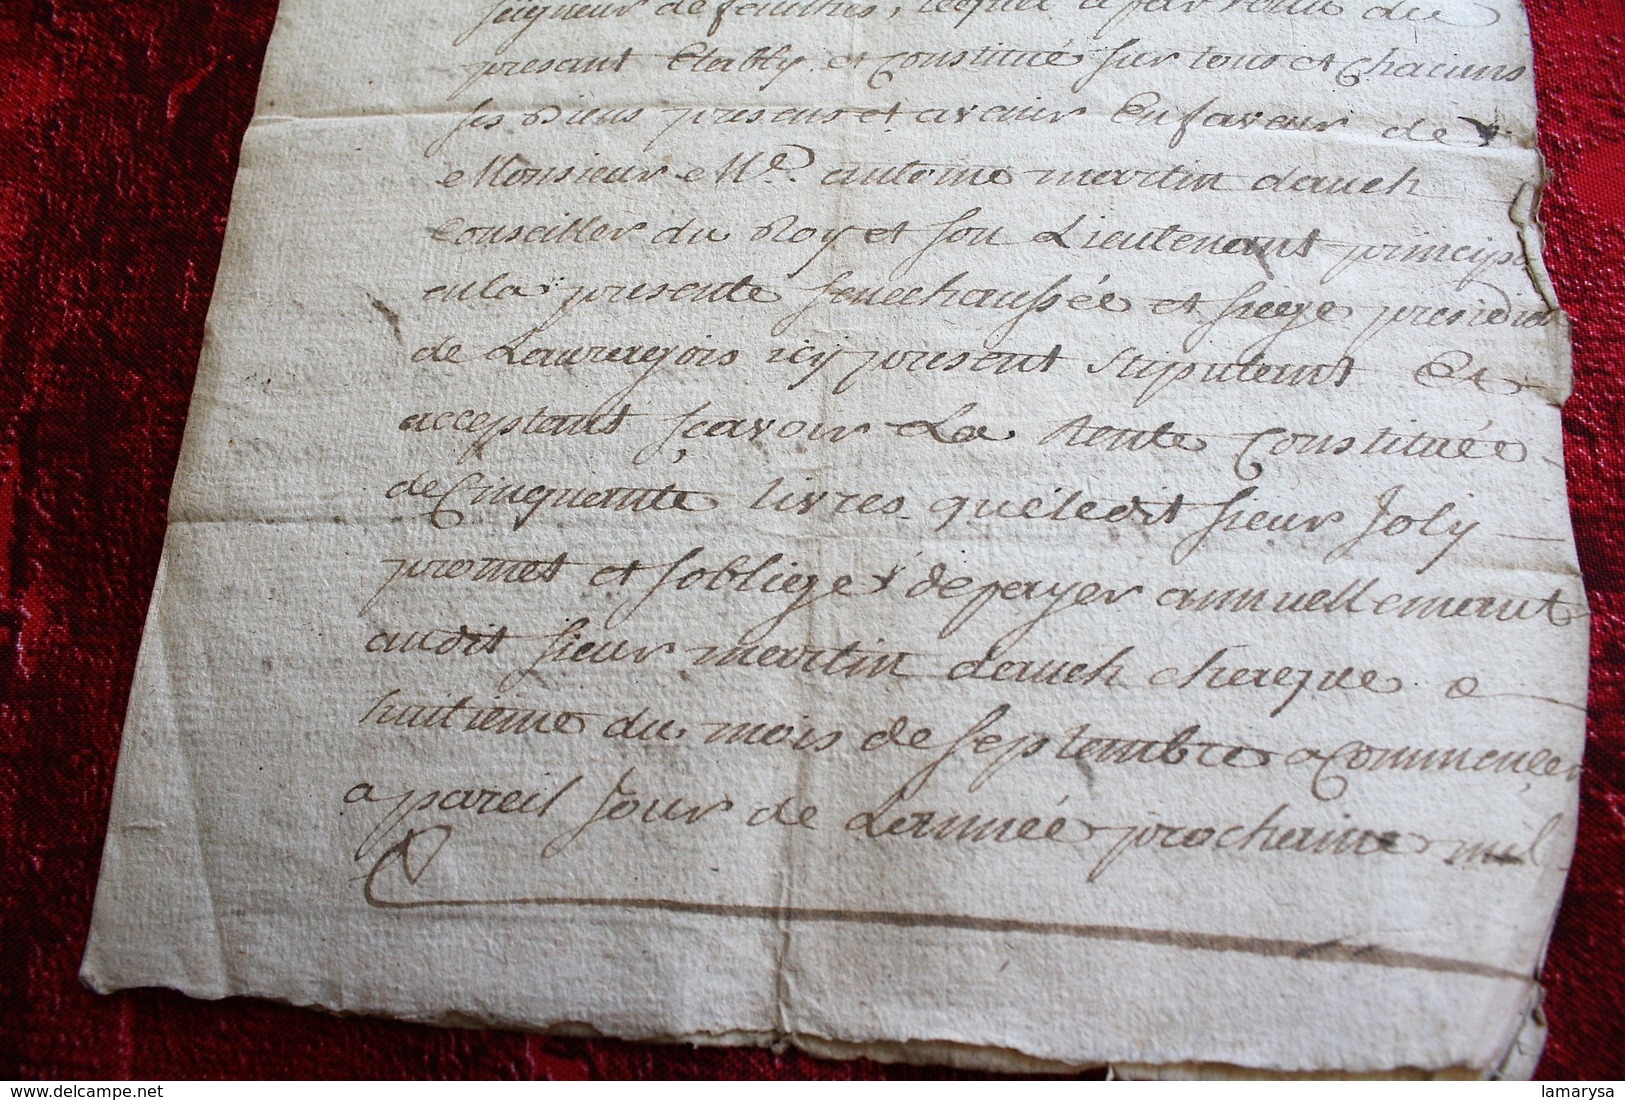 seigneur de fendines, lequel a par vertu du
presant Etably et constitué sur tous et chacuns
ses Biens presens et avenir En faveur de
Monsieur Me. antoine martin dauch
Conseiller du Roy et son Lieutenant principal
en la presente senechaussée et siege presidial
de Lauregois icy present stipulent Et
acceptant sçavoir La Rente Constituée
de Cinquente livres que ledit sieur Joly
promet et soblige de payer annuellement
audit sieur martin dauch chaque
huitieme du mois de septembre a Commencer
a pareil Jour de Lannée prochaine mil
lamarysa